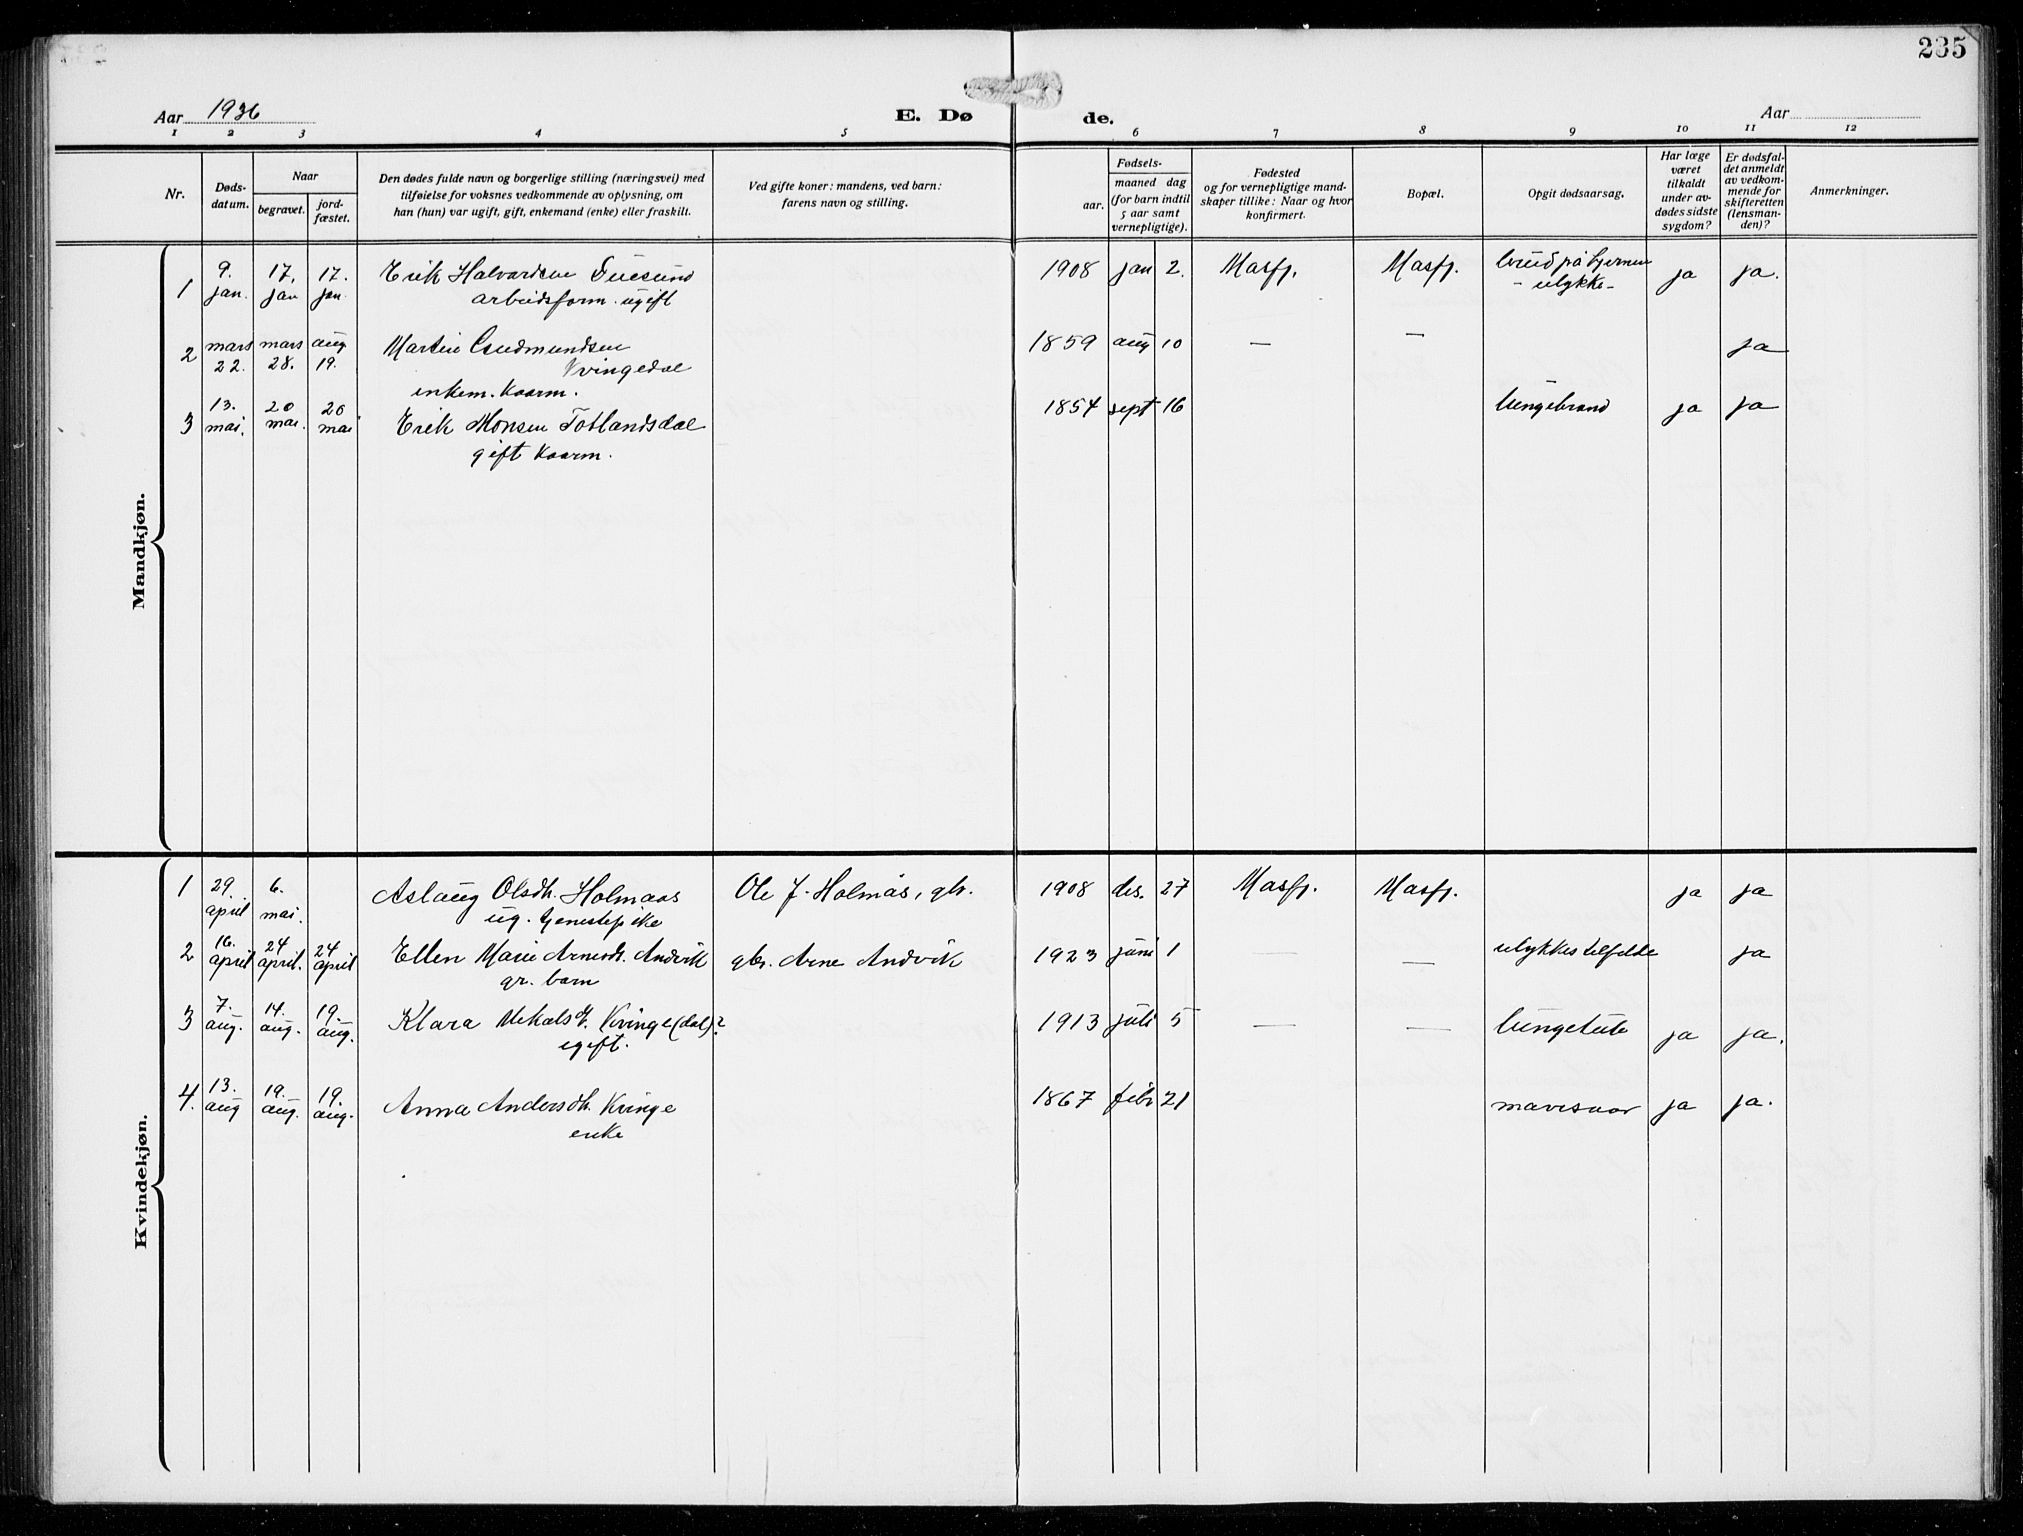 235
Aar 1936
E. Dø
de.
Aar
1 2 3 4 5 6 7 8 9 10 11 12
Nr.
Døds-
datum.
Naar
begravet.
jord-
fæstet.
Den dødes fulde navn og borgerlige stilling (næringsvei) med
tilføielse for voksnes vedkommende av oplysning, om
han (hun) var ugift, gift, enkemand (enke) eller fraskilt.
Ved gifte koner: mandens, ved barn:
farens navn og stilling.
Fødsels-
aar.
maaned dag
(for barn indtil
5 aar samt
vernepligtige).
Fødested
og for vernepligtige mand-
skaper tillike: Naar og hvor
konfirmert.
Bopæl.
Opgit dødsaarsag.
Har læge
været
tilkaldt
under av-
dødes sidste
sygdom?
Er dødsfal-
det anmeldt
av vedkom-
mende for
skifteretten
(lensman-
den)?
Anmerkninger.
Mandkjøn.
1 9. jan. 17. jan 17. jan. Erik Halvardsen Duesund 1908 jan 2. Masfj. Masfj. brud på hjernen ja ja.
arbeidsform. ugift - ulykke -
2 mars 22. mars 28. aug 19. Martin Gudmundsen 1859 aug 10 — — ja
Kvingedal
enkem. kaarm.
3 13. mai. 20 mai. 20 mai Erik Monsen Totlandsdal 1854 sept 16 lungebrand ja ja
gift kaarm.
Kvindekjøn.
1 29 april 6. mai. Aslaug Olsdh. Holmaas Ole J. Holmås, gbr. 1908 des. 27 Masfj. Masfj. ja ja
ug. tjenestepike
2 16. april 24 april. 24 april Ellen Marie Arnesdh. Andvik gbr. Arne Andvik 1923 juni 1 — — ulykkestilfelde ja
gr. barn
3 7. aug. 14. aug. 19. aug. Klara Mikalsdh. Kvinge(dal)? 1913 juli 5 — — lungetub ja ja.
ugift.
4. 13. aug 19. aug. 19. aug. Anna Andersdh. Kvinge 1867 febr 21 mavesaar ja ja.
enke